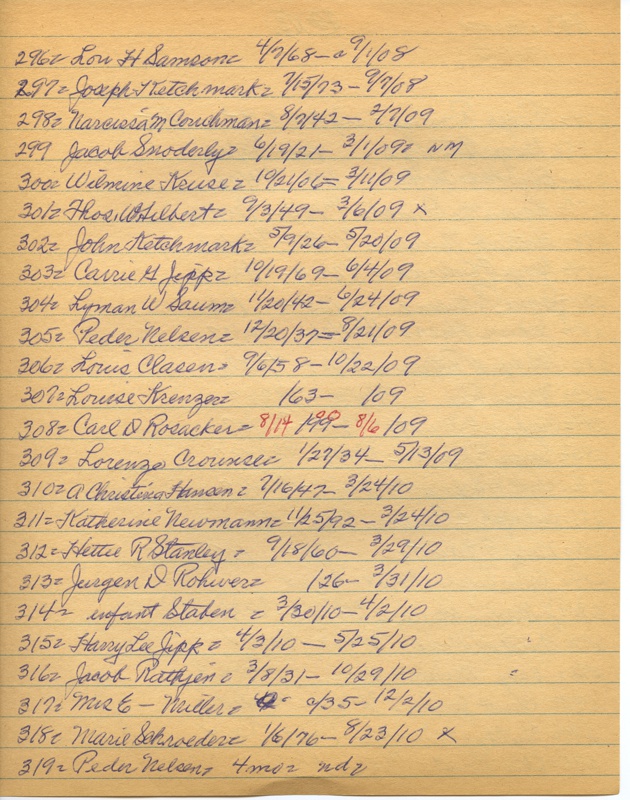 296= Lou H Samson= 4/7/68 - a 9/1/08
297= Joseph Ketchmark= 7/15/73 - 9/7/08
298= Narcissa M Couchman= 8/7/42 - 2/7/09
299 Jacob Snoderly= 6/19/21 - 3/1/09= NM
300= Wilmine Kruse= 10/21/06= 3/11/09
301= Thos. W Hilbert= 9/3/49 - 3/6/09 x
302= John Ketchmark= 5/9/26 - 5/20/09
303= Carrie G Jipp= 10/19/69 - 6/4/09
304= Lyman W Saum= 11/20/42 - 6/24/09
305= Peder Nelsen= 12/20/37= 8/21/09
306= Louis Clasen= 9/6/58 - 10/22/09
307= Louise Krenzer= /63 - /09
308= Carl D Rosacker= 8/14 /99 00 - 8/6 /09
309= Lorenzo Crounse= 1/27/34 - 5/13/09
310= A Christina Hansen= 7/16/47 - 3/24/10
311= Katherine Newmann= 11/25/92 - 3/24/10
312= Hettie R Stanley= 9/18/60 - 3/29/10
313= Jurgen D Rohwer= /26 - 3/31/10
314= infant Staben = 3/30/10 - 4/2/10
315= Harry Lee Jipp= 4/3/10 - 5/25/10
316= Jacob Rathjen= 3/8/31 - 10/29/10
317= Mrs E - Miller= c/35 - 12/2/10
318= Marie Schroeder= 1/6/76 - 8/23/10 x
319= Peder Nelsen= 4mo= nd=